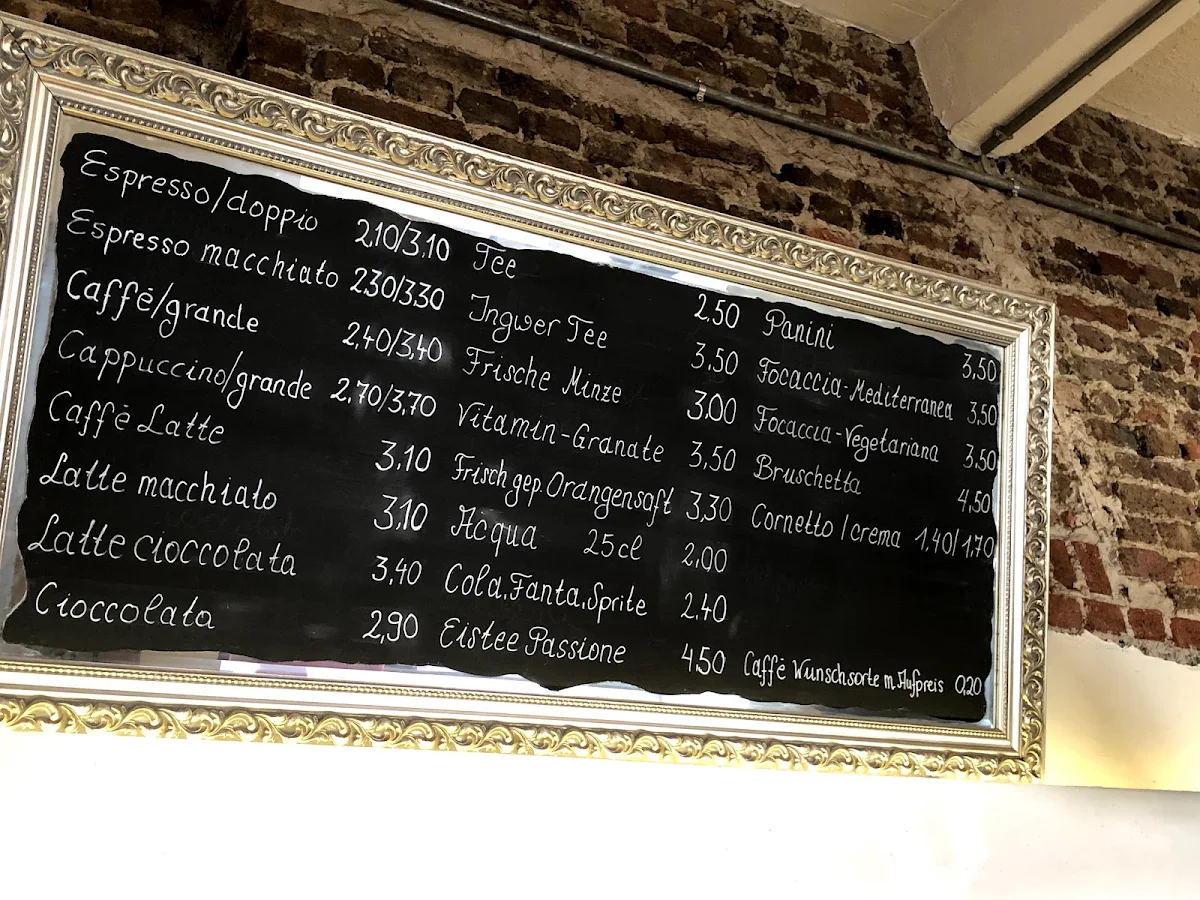 Espresso/doppio 2,10/3,10
Espresso macchiato 2,30/3,30
Caffé/grande 2,40/3,40
Cappuccino/grande 2,70/3,70
Caffé Latte 3,10
Latte macchiato 3,10
Latte cioccolata 3,40
Cioccolata 2,90
Tee 2,50
Ingwer Tee 3,50
Frische Minze 3,00
Vitamin-Granate 3,50
Frisch gep. Orangensaft 3,30
Acqua 25cl 2,00
Cola, Fanta, Sprite 2,40
Eistee Passione 4,50
Panini 3,50
Focaccia-Mediterranea 3,50
Focaccia-Vegetariana 3,50
Bruschetta 4,50
Cornetto/crema 1,40/1,70
Caffé Wunschsorte m. Aufpreis 0,20